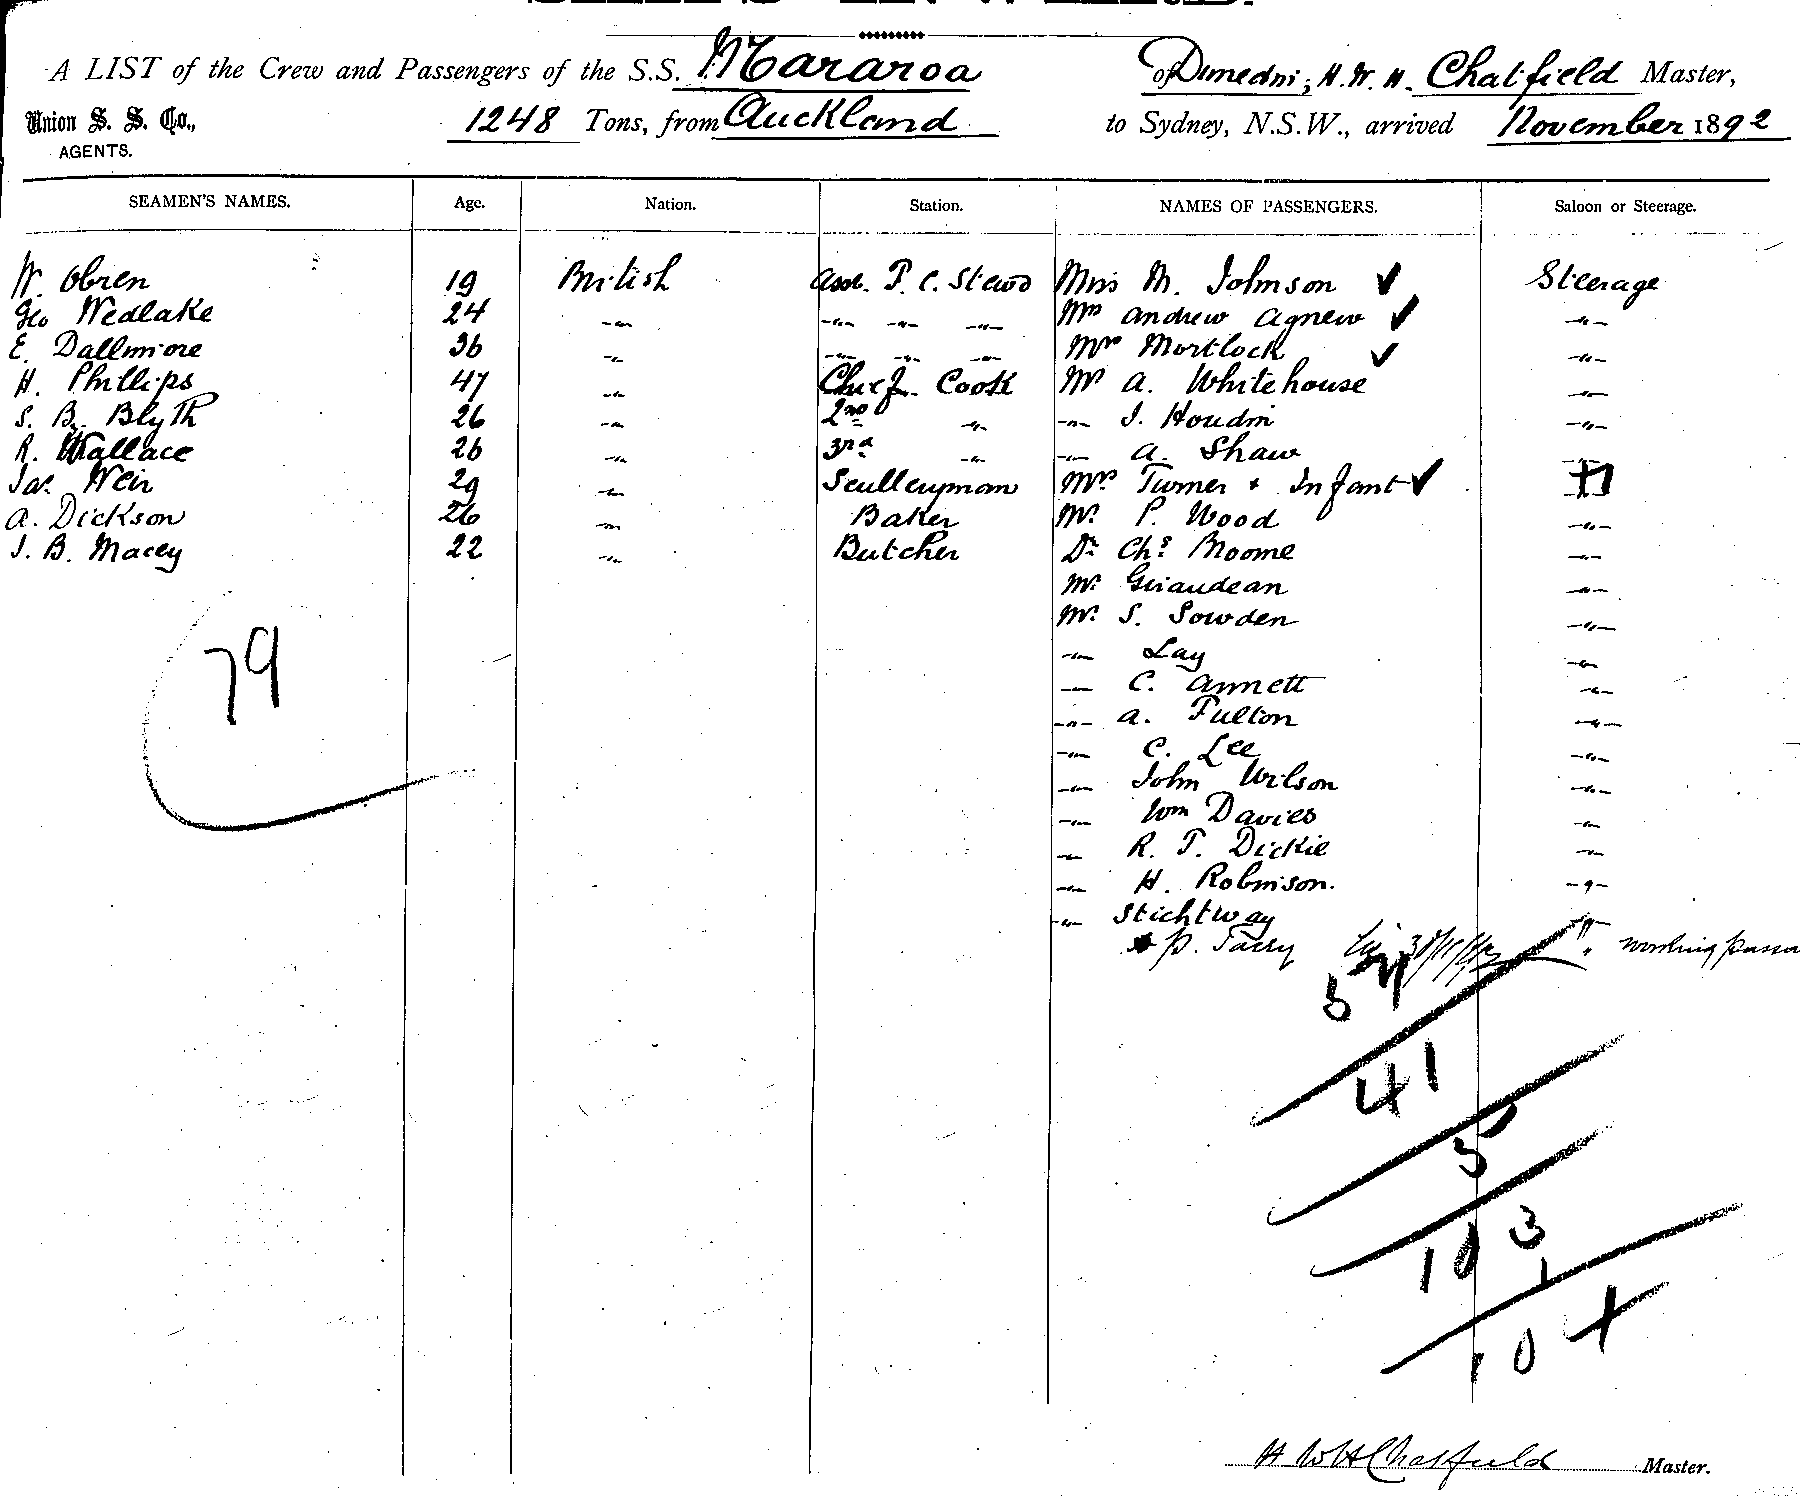 A LIST of the Crew and Passengers of the S.S. Mararoa of Dunedin, H. W. H. Chatfield Master,
Union S. S. Co., 1248 Tons, from Auckland to Sydney, N.S.W., arrived November 1892
AGENTS.
SEAMEN'S NAMES. Age. Nation. Station. NAMES OF PASSENGERS. Saloon or Steerage.
W. Obren 19 British Asst. P. C. Stewd Miss M. Johnson ✓ Steerage
Geo Wedlake 24 -"- -"- -"- -"- Mrs Andrew Agnew ✓ -"-
E. Dallmore 36 -"- -"- -"- -"- Mrs Mortlock ✓ -"-
H. Phillips 47 -"- Chief Cook Mr A. Whitehouse -"-
S. B. Blyth 26 -"- 2nd -"- -"- J. Houdin -"-
R. Wallace 26 -"- 3rd -"- -"- A. Shaw -"-
Jas. Weir 29 -"- Sculleryman Mrs Turner + Infant ✓
A. Dickson 26 -"- Baker Mr. P. Wood -"-
J. B. Macey 22 -"- Butcher Dr Chs Moome -"-
Mr Giraudean -"-
Mr. S. Sowden -"-
-"- Lay -"-
-"- C. Annett -"-
-"- A. Fulton -"-
-"- C. Lee -"-
-"- John Wilson -"-
-"- Wm Davies -"-
-"- R. T. Dickie -"-
-"- H. Robinson. -"-
-"- Stichtway "
P. Tarry " working passa
79
41
5
103
1
104
H W H Chatfield Master.